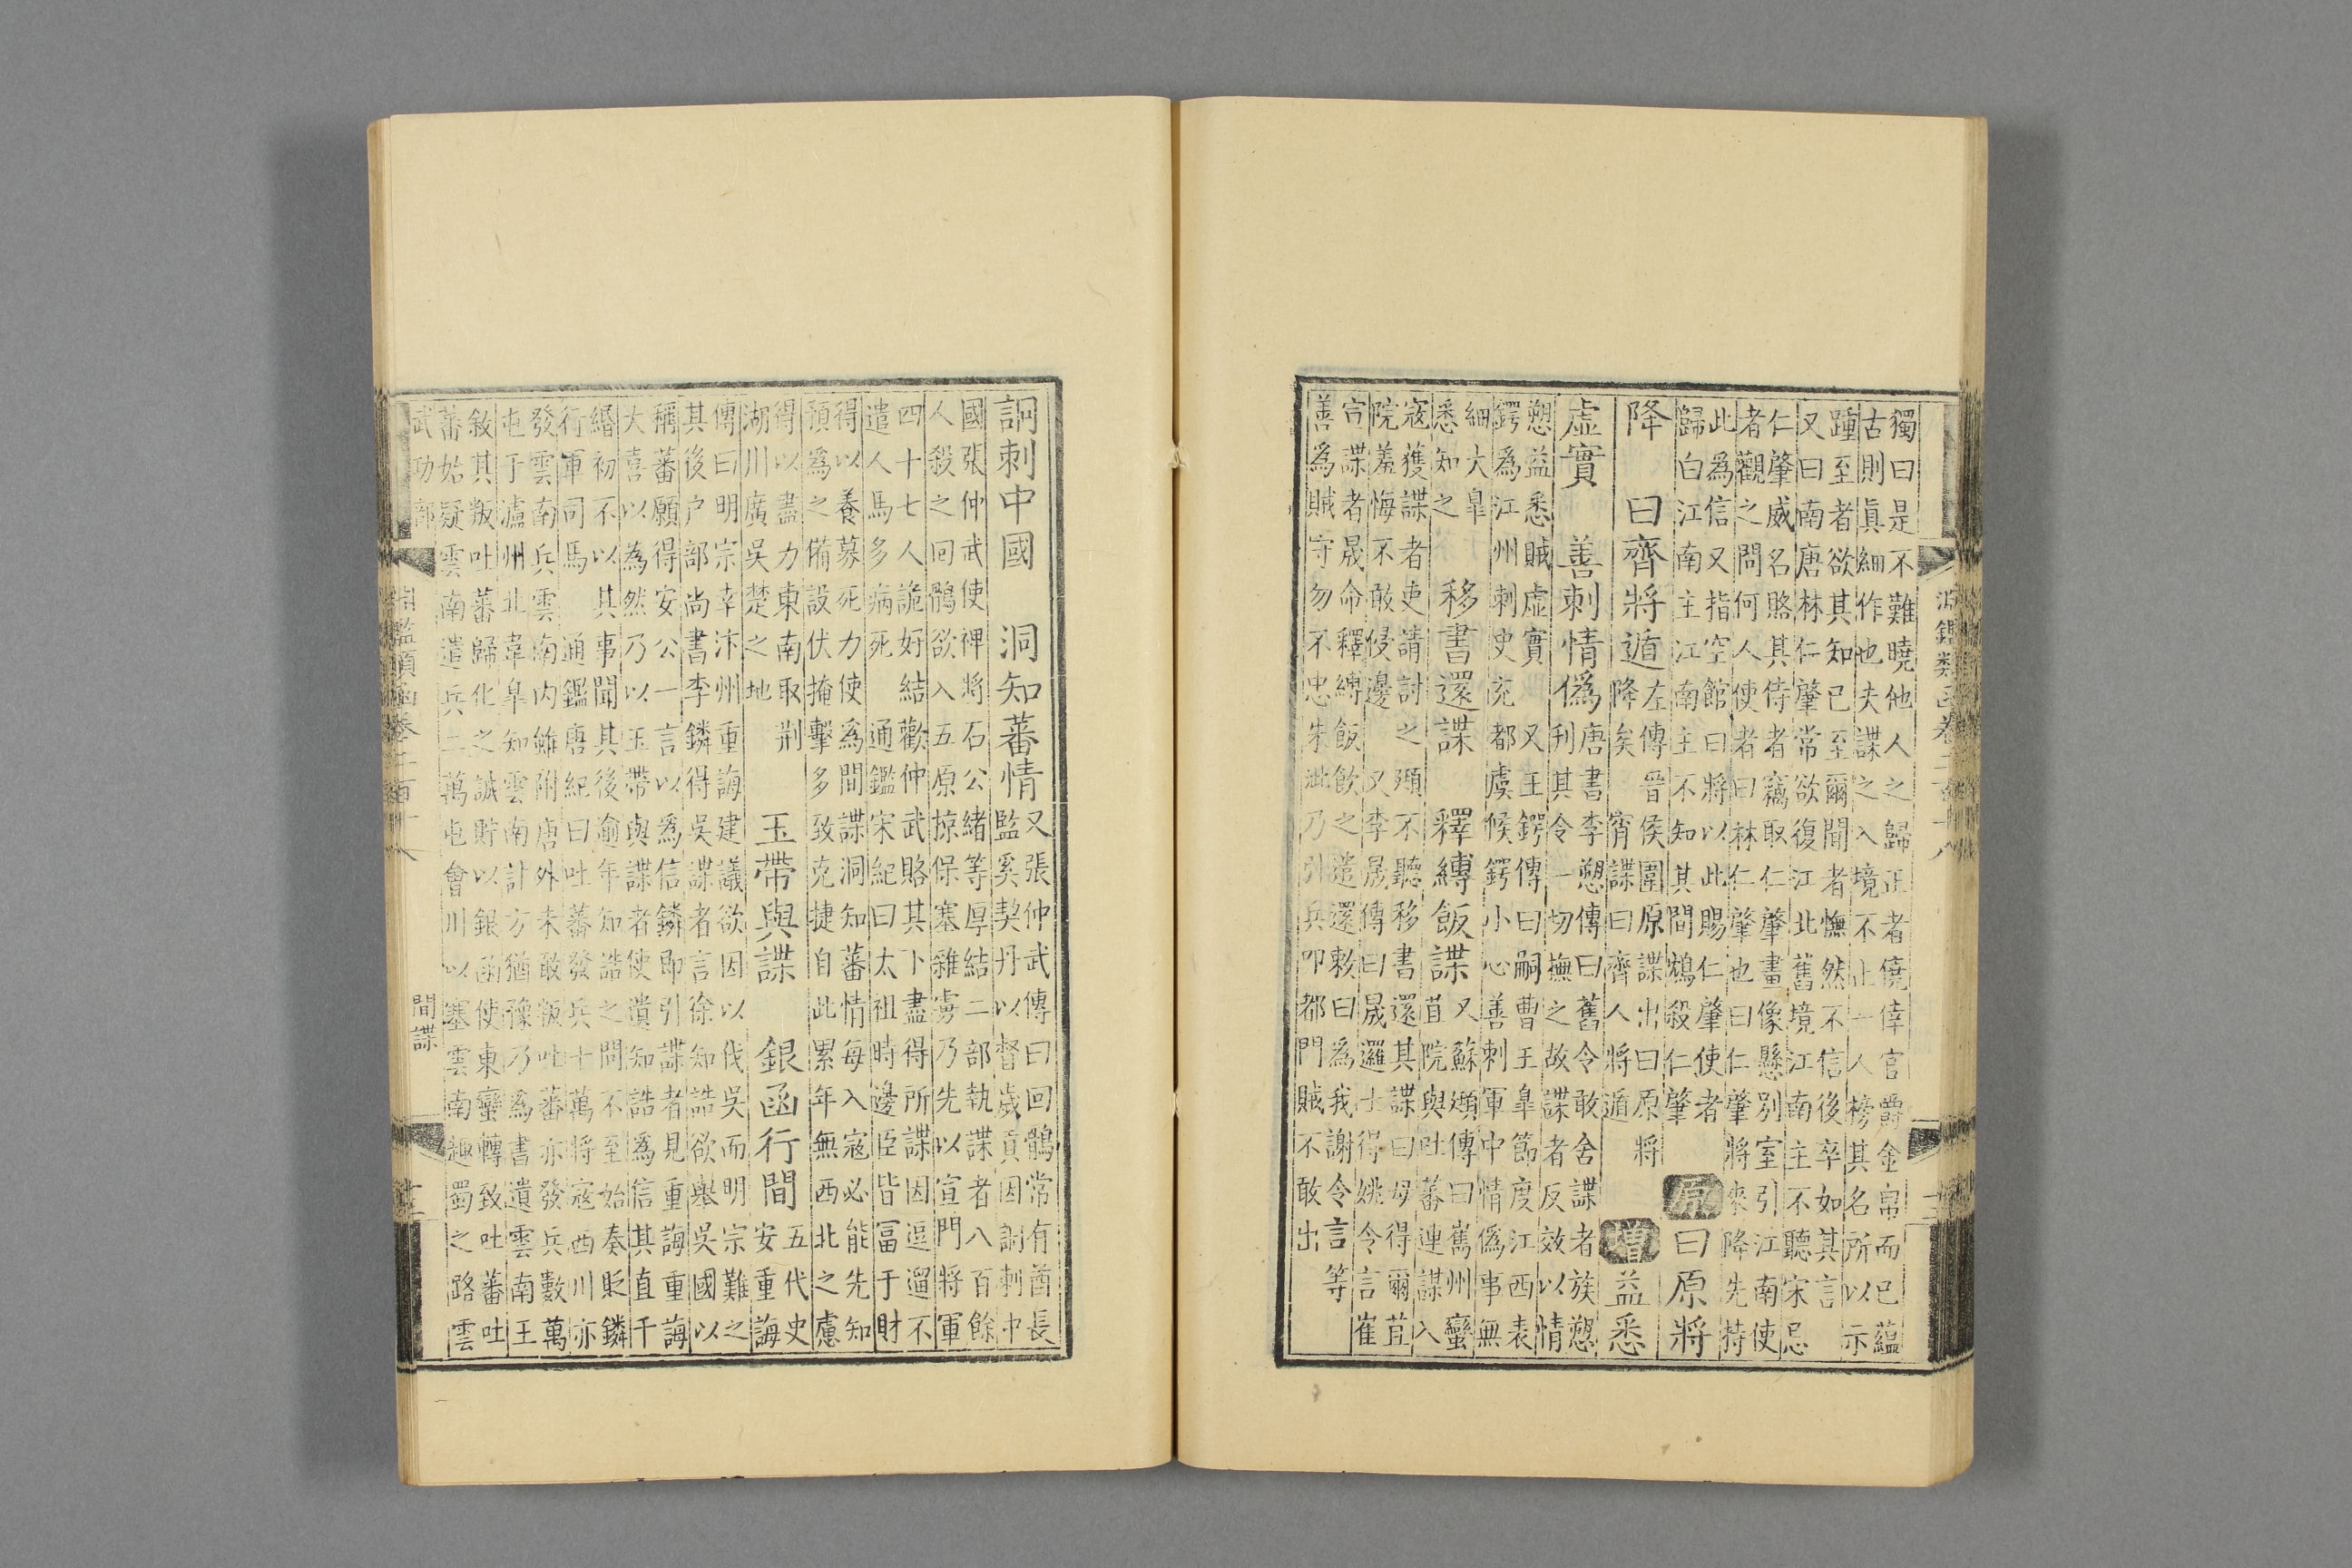 淵鑑類函卷二百十八
獨曰是不難曉他人之歸正者僥倖官爵金帛而已蘊
古則眞細作也夫諜之入境不止一人榜其名所以示
踵至者欲其知已至爾聞者憮然不信後卒如其言
又曰南唐林仁肇常欲復江北舊境江南主不聽宋忌
仁肇威名賂其侍者竊取仁肇畫像懸別室引江南使
者觀之問何人使者曰林仁肇也曰仁肇將來降先持
此爲信又指空館曰將以此賜仁肇使者
歸白江南主江南主不知其間鴆殺仁肇
原曰原將
降 曰齊將遁
左傳晉侯圍原諜出曰原將
降矣 宵諜曰齊人將遁
增益悉
虛實 善刺情僞
唐書李愬傳曰舊令敢舍諜者族愬
刋其令一切撫之故諜者反效以情
愬益悉賊虛實 又王鍔傳曰嗣曹王皐節度江西表
鍔爲江州刺史充都虞候鍔小心善刺軍中情僞事無
細大皐
悉知之
移書還諜 釋縛飯諜
又蘇頲傳曰嶲州蠻
苴院與吐蕃連謀入
寇獲諜者吏請討之頲不聽移書還其諜曰毋得爾苴
院羞悔不敢侵邊 又李晟傳曰晟邏士得姚令言崔
宣諜者晟命釋縛飯飲之遣還敕曰爲我謝令言等
善爲賊守勿不忠朱泚乃引兵叩都門賊不敢出
詗刺中國 洞知蕃情
又張仲武傳曰回鶻常有酋長
監奚契丹以督歲貢因詗刺中
國張仲武使裨將石公緒等厚結二部執諜者八百餘
人殺之回鶻欲入五原掠保塞雜虜乃先以宣門將軍
四十七人詭好結歡仲武賂其下盡得所諜因逗遛不
遣人馬多病死 通鑑宋紀曰太祖時邊臣皆富于財
得以養募死力使爲間諜洞知蕃情每入寇必能先知
預爲之備設伏掩擊多致克捷自此累年無西北之慮
得以盡力東南取荆
湖川廣吳楚之地
玉帶與諜 銀函行間
五代史
安重誨
傳曰明宗幸汴州重誨建議欲因以伐吳而明宗難之
其後户部尚書李鏻得吳諜者言徐知誥欲舉吳國以
稱蕃願得安公一言以爲信鏻即引諜者見重誨重誨
大喜以爲然乃以玉帶與諜者使遺知誥爲信其直千
緡初不以其事聞其後逾年知誥之問不至始奏貶鏻
行軍司馬 通鑑唐紀曰吐蕃發兵十萬將寇西川亦
發雲南兵雲南内雖附唐外未敢叛吐蕃亦發兵數萬
屯于瀘州北韋皐知雲南計方猶豫乃爲書遺雲南王
敘其叛吐蕃歸化之誠貯以銀函使東蠻轉致吐蕃吐
蕃始疑雲南遣兵二萬屯會川以塞雲南趣蜀之路雲
武功部 淵鑑類函卷二百十八 間諜